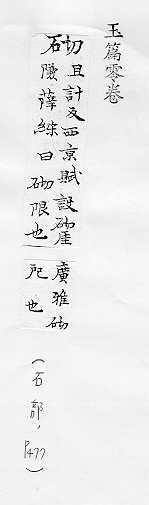 玉篇零卷
砌
且計反西京賦設砌厓
隒薛綜曰砌限也
廣雅砌
戺也
（石部，P477）